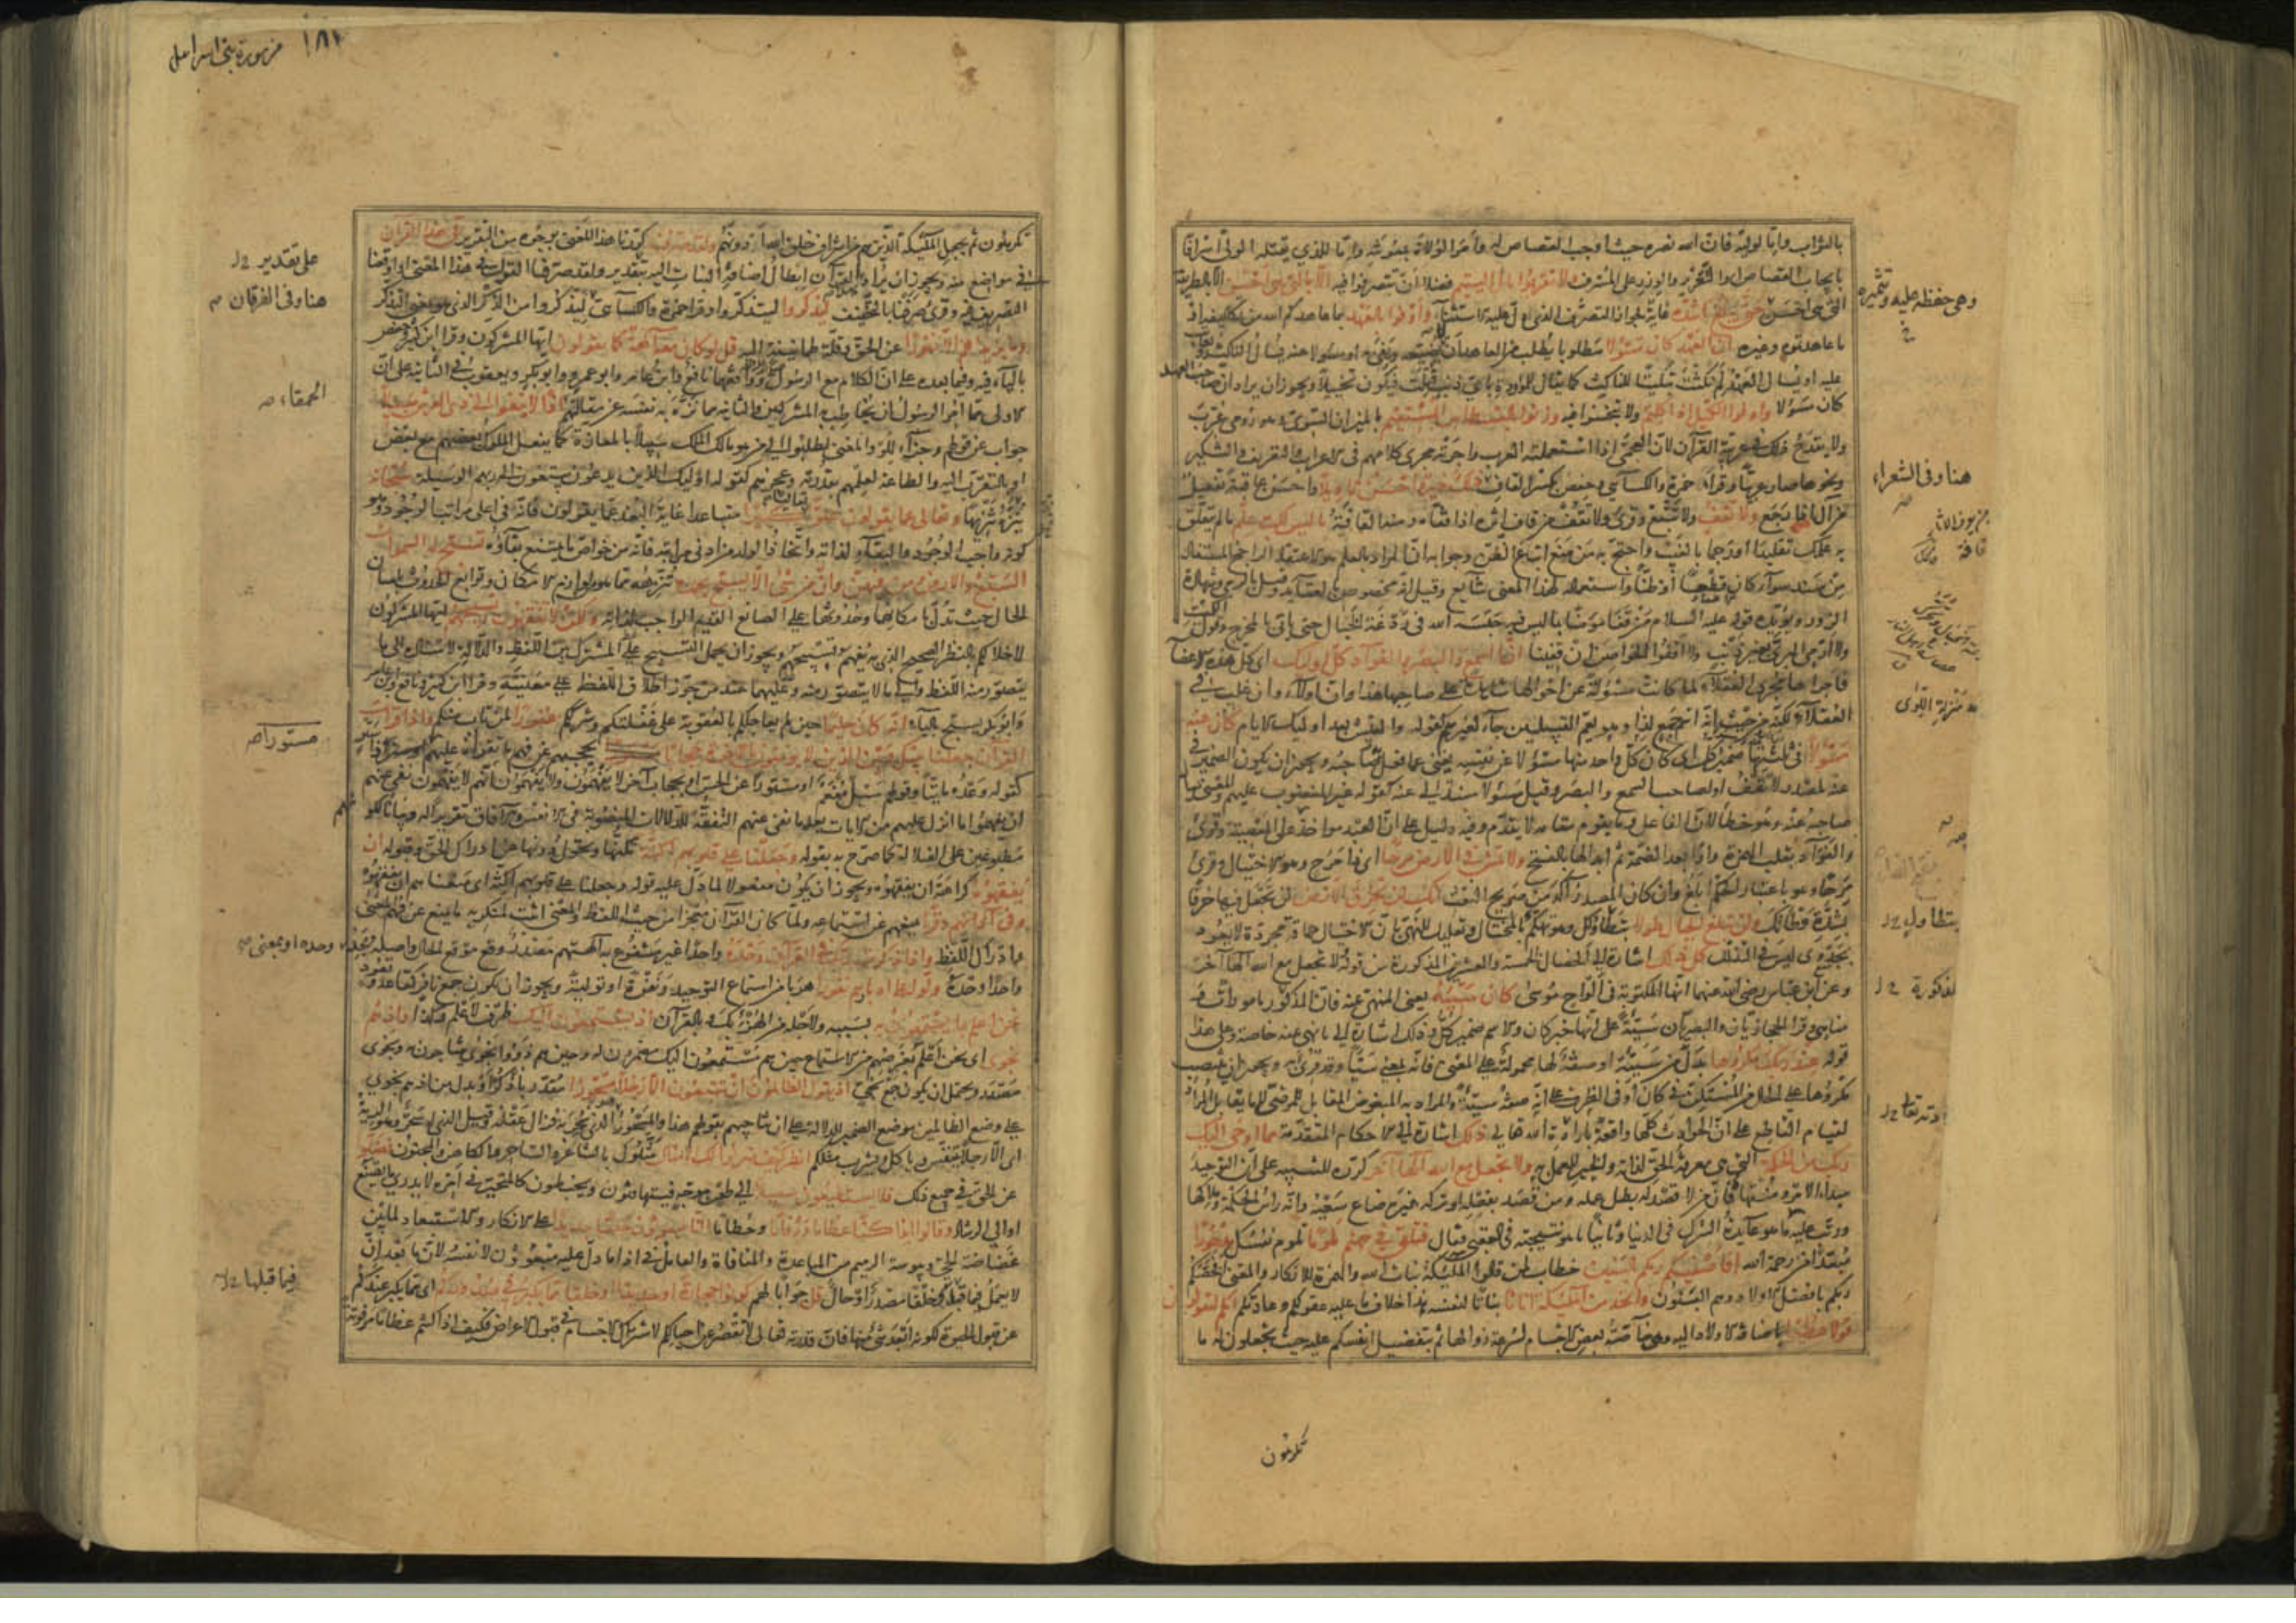 بالثواب واما لوليه فان الله نصره حيث اوجب القصاص له وامر الولاة بمعونته واما للذي يقتله الولي اسرافا
بايجاب القصاص او التعزير والوزر على المسرف ولا تقربوا مال اليتيم فضلا ان تتصرفوا فيه الا بالتي هي احسن الا بالطريقة
التي هي احسن حتى يبلغ اشده غاية لجواز التصرف الذي دل عليه الاستثناء واوفوا بالعهد بما عاهدكم الله من تكاليفه او
ما عاهدتموه وغيره ان العهد كان مسؤلا مطلوبا يطلب من المعاهد ان لا يضيعه ويفي به او مسؤلا عنه يسأل الناكث ويعاتب
عليه او يسأل العهد لم نكثت تبكيتا للناكث كما يقال للموؤدة باي ذنب قتلت فيكون تخييلا ويجوز ان يراد ان صاحب العهد
كان مسؤلا واوفوا الكيل اذا كلتم ولا تبخسوا فيه وزنوا بالقسطاس المستقيم بالميزان السوي وهو رومي عرب
ولا يقدح ذلك في عربية القرآن لان العجمي اذا استعملته العرب واجرته مجرى كلامهم في الاعراب والتعريف والتنكير
ونحوها صار عربيا وقرأ حمزة والكسائي وحفص بكسر القاف ذلك خير واحسن تأويلا واحسن عاقبة تفعيل
من آل اذا رجع ولا تقف ولا تتبع وقرئ ولا تقف من قاف اثره اذا قفاه ومنه القافة ما ليس لك به علم ما لم يتعلق
به علمك تقليدا او رجما بالغيب واحتج به من منع اتباع الظن وجوابه ان المراد بالعلم هو الاعتقاد الراجح المستفاد
من سند سواء كان قطعيا او ظنا واستعماله لهذا المعنى شايع وقيل انه مخصوص بالعقايد وقيل بالرمي وشهادة
الزور ويؤيده قوله عليه السلام من قفا مؤمنا بما ليس فيه حبسه الله في ردغة الخبال حتى يأتي بالمخرج وقول الكميت
ولا ارمي البريء بغير ذنب ولا اقفوا الحواصن ان قفينا ان السمع والبصر والفؤاد كل اولئك اي كل هذه الاعضاء
فاجراها مجرى العقلاء لما كانت مسؤلة عن احوالها شاهدة على صاحبها هذا وان اولاء وان غلب في
العقلاء لكنه من حيث انه اسم جمع لذا وهو يعم القبيلين جاء لغيرهم كقوله والعيش بعد اولئك الايام كان عنه
مسؤلا في ثلثتها ضمير كل اي كان كل واحد منها مسؤلا عن نفسه يعني عما فعل به صاحبه ويجوز ان يكون الضمير في
عنه لمصدر لا تقف او لصاحب السمع والبصر وقيل مسؤلا مسند الى عنه كقوله غير المغضوب عليهم والمعنى يسأل
صاحبه عنه وهو خطأ لان الفاعل وما يقوم مقامه لا يتقدم وفيه دليل على ان العبد مؤاخذ بعزمه على المعصية وقرئ
والفواد بقلب الهمزة واوا بعد الضمة ثم ابدالها بالفتح ولا تمش في الارض مرحا اي ذا مرح وهو الاختيال وقرئ
مرحا وهو باعتبار الحكم ابلغ وان كان المصدر آكد من صريح النعت انك لن تخرق الارض لن تجعل فيها خرقا
بشدة وطأتك ولن تبلغ الجبال طولا بتطاولك وهو تهكم بالمختال وتعليل للنهي بان الاختيال حماقة مجردة لا يعود
بجدوى ليس في التذلل كل ذلك اشارة الى الخصال الخمسة والعشرين المذكورة من قوله لا تجعل مع الله الها آخر
وعن ابن عباس رضي الله عنهما انها المكتوبة في الواح موسى كان سيئه يعني المنهي عنه فان المذكور مأمورات و
مناهي وقرأ الحجازيان والبصريان سيئة على انها خبر كان والاسم ضمير كل وذلك اشارة الى ما نهي عنه خاصة وعلى هذا
قوله عند ربك مكروها بدل من سيئة او صفة لها محمولة على المعنى فانه بمعنى سيئا وقد قرئ به ويجوز ان ينتصب
مكروها على الحال من المستكن في كان او في الظرف على انه صفة سيئة والمراد به المبغوض المقابل للمرضي لا ما يقابل المراد
لقيام القاطع على ان الحوادث كلها واقعة بارادة الله تعالى ذلك اشارة الى الاحكام المتقدمة مما اوحى اليك
ربك من الحكمة التي هي معرفة الحق لذاته والخير للعمل به ولا تجعل مع الله الها آخر كرره للتنبيه على ان التوحيد
مبدأ الامر ومنتهاه فان من لا قصد له بطل عمله ومن قصد بفعله او تركه غيره ضاع سعيه وانه رأس الحكمة وملاكها
ورتب عليه ما هو عائدة الشرك في الدنيا وثانيا ما هو نتيجته في العقبى فقال فتلقى في جهنم ملوما تلوم نفسك مدحورا
مبعدا من رحمة الله افاصفيكم ربكم بالبنين خطاب لمن قالوا الملئكة بنات الله والهمزة للانكار والمعنى افخصكم
ربكم بافضل الاولاد وهم البنون واتخذ من الملئكة اناثا بناتا لنفسه هذا خلاف ما عليه عقولكم وعادتكم انكم لتقولون
قولا عظيما باضافة الاولاد اليه وهي خاصة بعض الاجسام لسرعة زوالها ثم بتفضيل انفسكم عليه حيث تجعلون له ما
تكرهون
وهي حفظه عليه وتثميره
هنا وفي الشعراء
منزلة
بتطاول
المذكورة
ارادته تعالى
١٨٢ من سورة بني اسرائيل
تكرهون ثم بجعل الملئكة الذين هم من اشرف خلق الله ادونهم ولقد صرفنا كررنا هذا المعنى بوجوه من التقرير في هذا القرآن
في مواضع منه ويجوز ان يراد بهذا القرآن ابطال اضافة البنات اليه بتقدير ولقد صرفنا القول في هذا المعنى او اوقعنا
التصريف فيه وقرئ صرفنا بالتخفيف ليذكروا ليتذكروا وقرأ حمزة والكسائي ليذكروا من الذكر الذي هو بمعنى التذكر
وما يزيدهم الا نفورا عن الحق وقلة طمانينة اليه قل لو كان معه آلهة كما يقولون ايها المشركون وقرأ ابن كثير وحفص
بالياء فيه وفيما بعده على ان الكلام مع الرسول ووافقهما نافع وابن عامر وابو عمرو وابو بكر ويعقوب في الثانية على ان
الاولى مما امر الرسول ان يخاطب به المشركين والثانية مما نزه به نفسه عن مقالتهم اذا لابتغوا الى ذي العرش سبيلا
جواب عن قولهم وجزاء للو والمعنى لطلبوا الى من هو مالك الملك سبيلا بالمعازة كما يفعل الملوك بعضهم مع بعض
او بالتقرب اليه والطاعة لعلمهم بقدرته وعجزهم كقوله اولئك الذين يدعون يبتغون الى ربهم الوسيلة سبحانه
ينزه تنزيها وتعالى عما يقولون علوا كبيرا متباعدا غاية البعد عما يقولون فانه في اعلى مراتب الوجود وهو
كونه واجب الوجود والبقاء لذاته واتخاذ الولد من ادنى مراتبه فانه من خواص ما يمتنع بقاؤه تسبح له السموات
السبع والارض ومن فيهن وان من شيء الا يسبح بحمده تنزهه عما هو من لوازم الامكان وتوابع الحدوث بلسان
الحال حيث تدل بامكانها وحدوثها على الصانع القديم الواجب لذاته ولكن لا تفقهون تسبيحهم ايها المشركون
لاخلالكم بالنظر الصحيح الذي به يفهم تسبيحهم ويجوز ان يحمل التسبيح على المشترك بين اللفظ والدلالة لاسناده الى ما
يتصور منه اللفظ والى ما لا يتصور منه وعليهما عند من جوز اطلاق اللفظ على معنييه وقرأ ابن كثير ونافع وابن عامر
وابو بكر يسبح بالياء انه كان حليما حين لم يعاجلكم بالعقوبة على غفلتكم وشرككم غفورا لمن تاب منكم واذا قرأت
القرآن جعلنا بينك وبين الذين لا يؤمنون بالآخرة حجابا يحجبهم عن فهم ما تقرأه عليهم مستورا ذا ستر
كقوله وعده مأتيا وقولهم سيل مفعم او مستورا عن الحس او بحجاب آخر لا يفهمون ولا يفهمون انهم لا يفهمون نفى عنهم
ان يفهموا ما انزل عليهم من الآيات بعد ما نفى عنهم التفقه للدلالات المنصوبة في الانفس والآفاق تقريرا له وبيانا لكونهم
مطبوعين على الضلالة كما صرح به بقوله وجعلنا على قلوبهم اكنة تكنها وتحول دونها عن ادراك الحق وقبوله ان
يفقهوه كراهة ان يفقهوه ويجوز ان يكون مفعولا لما دل عليه قوله وجعلنا على قلوبهم اكنة اي منعناهم ان يفقهوه
وفي آذانهم وقرا يمنعهم عن استماعه ولما كان القرآن معجزا من حيث اللفظ والمعنى اثبت لمنكريه ما يمنع عن فهم المعنى
وادراك اللفظ واذا ذكرت ربك في القرآن وحده واحدا غير مشفوع به آلهتهم مصدر وقع موقع الحال واصله يحد وحده او بمعنى
واحدا وحده ولوا على ادبارهم نفورا هربا من استماع التوحيد ونفرة او تولية ويجوز ان يكون جمع نافر كقاعد وقعود
نحن اعلم بما يستمعون به بسببه ولاجله من الهزؤ بك وبالقرآن اذ يستمعون اليك ظرف لاعلم وكذا واذ هم
نجوى اي نحن اعلم بغرضهم من الاستماع حين هم مستمعون اليك مضمرون له وحين هم ذوو نجوى يتناجون به ونجوى
مصدر ويحتمل ان يكون جمع نجي اذ يقول الظالمون ان تتبعون الا رجلا مسحورا مقدر باذكر او بدل من اذ هم نجوى
على وضع الظالمين موضع الضمير للدلالة على ان تناجيهم بقولهم هذا والمسحور الذي سحر به فزال عقله وقيل الذي له سحر وهو الرية
اي الا رجلا يتنفس وياكل ويشرب مثلكم انظر كيف ضربوا لك الامثال مثلوك بالشاعر والساحر والكاهن والمجنون فضلوا
عن الحق في جميع ذلك فلا يستطيعون سبيلا الى طعن موجه فيتهافتون ويخبطون كالمتحير في امره لا يدري ما يصنع
او الى الرشاد وقالوا ائذا كنا عظاما ورفاتا وحطاما ائنا لمبعوثون خلقا جديدا على الانكار والاستبعاد لما بين
غضاضة الحي ويبوسة الرميم من المباعدة والمنافاة والعامل في اذا ما دل عليه مبعوثون لا نفسه لان ما بعد ان
لا يعمل فيما قبله وخلقا مصدر او حال قل جوابا لهم كونوا حجارة او حديدا او خلقا مما يكبر في صدوركم اي مما يكبر عندكم
عن قبول الحيوة لكونه ابعد شيء منها فان قدرته تعالى لا تقصر عن احيائكم لاشتراك الاجسام في قبول الاعراض فكيف اذا كنتم عظاما مرفوتة
على تقدير
هنا وفي الفرقان
الحمقاء
مستورا
فيما قبلها